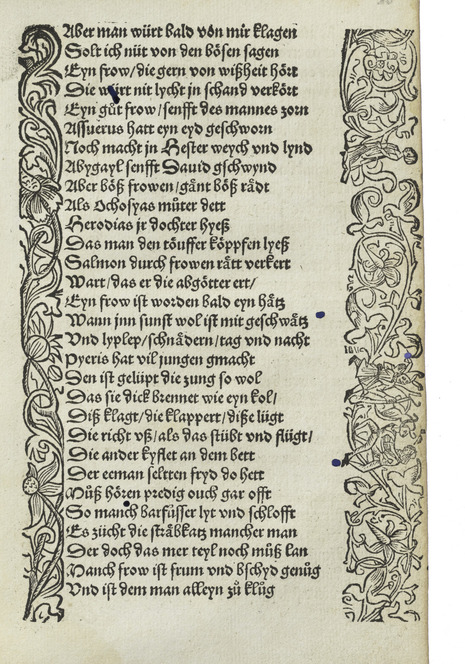 Aber man würt bald von mir klagen
Solt ich nüt von den bösen sagen
Eyn frow/die gern von wißheit hört
Die würt nit lycht jn schand verkört
Eyn gůt frow/senfft des mannes zorn
Assuerus hatt eyn eyd geschworn
Noch macht jn Hester weych vnd lynd
Abygayl senfft Dauid gschwynd
Aber böß frowen/gånt böß rådt
Als Ochosyas můter dett
Herodias jr dochter hyeß
Das man den töuffer köppfen lyeß
Salmon durch frowen rått verkert
Wart/das er die abgötter ert/
Eyn frow ist worden bald eyn håtz
Wann jnn sunst wol ist mit geschwåtz
Vnd lyplep/schnådern/tag vnd nacht
Pyeris hat vil jungen gmacht
Den ist gelüpt die zung so wol
Das sie dick brennet wie eyn kol/
Diß klagt/die klappert/diße lügt
Die richt vß/als das stübt vnd flügt/
Die ander kyflet an dem bett
Der eeman seltten fryd do hett
Můß hören predig ouch gar offt
So manch barfüsser lyt vnd schlofft
Es zücht die stråbkatz mancher man
Der doch das mer teyl noch můß lan
Manch frow ist frum vnd bschyd genůg
Vnd ist dem man alleyn zů klůg